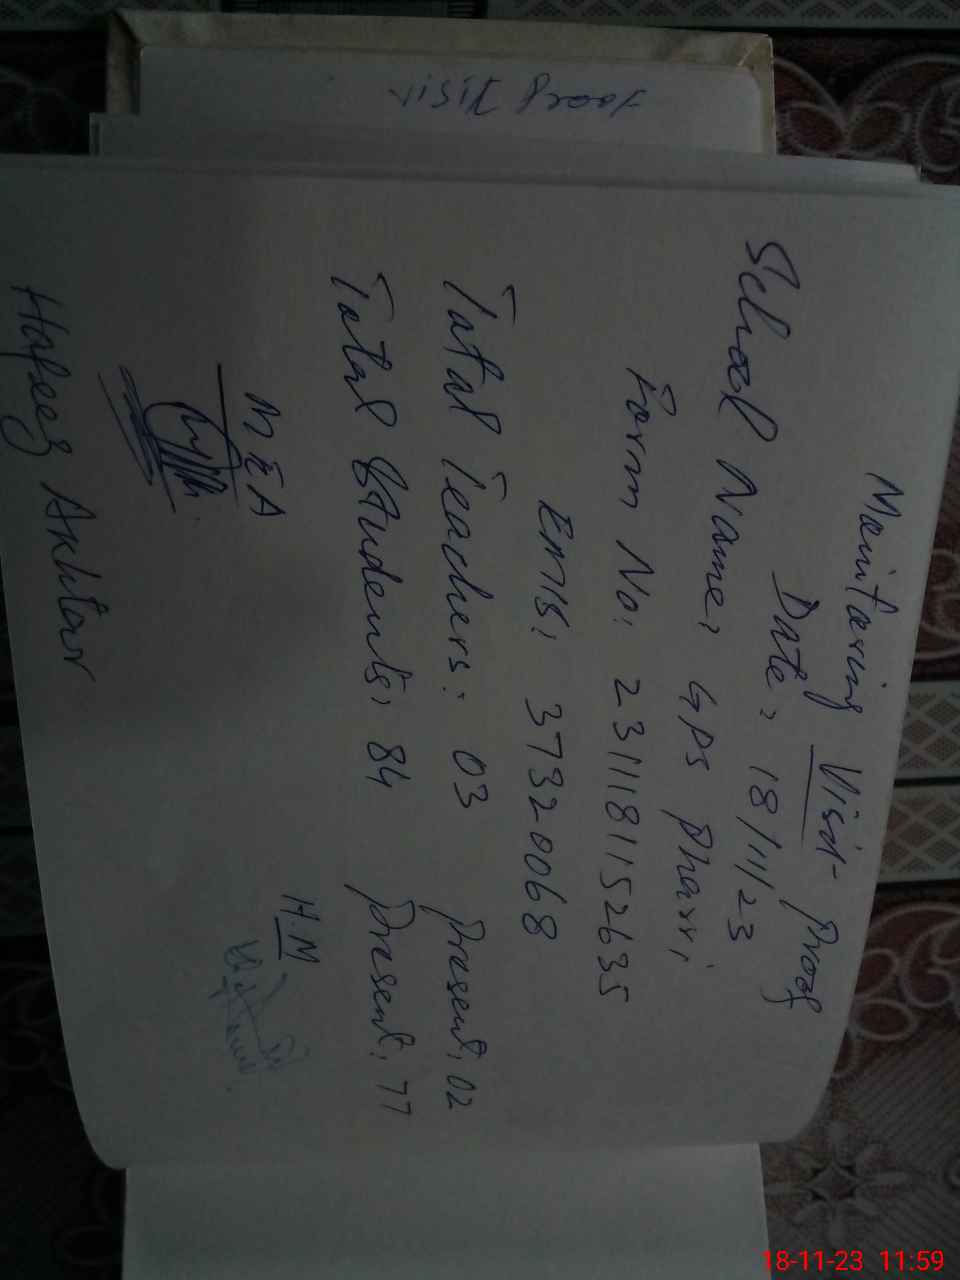 Monitoring Visit Proof
Date: 18/11/23
School Name: GPS Pharri
Form No: 231181152635
EMIS: 37320068
Total Teachers: 03 Present: 02
Total Students: 84 Present: 77
MEA H.M
Hafeez Akhtar
18-11-23 11:59